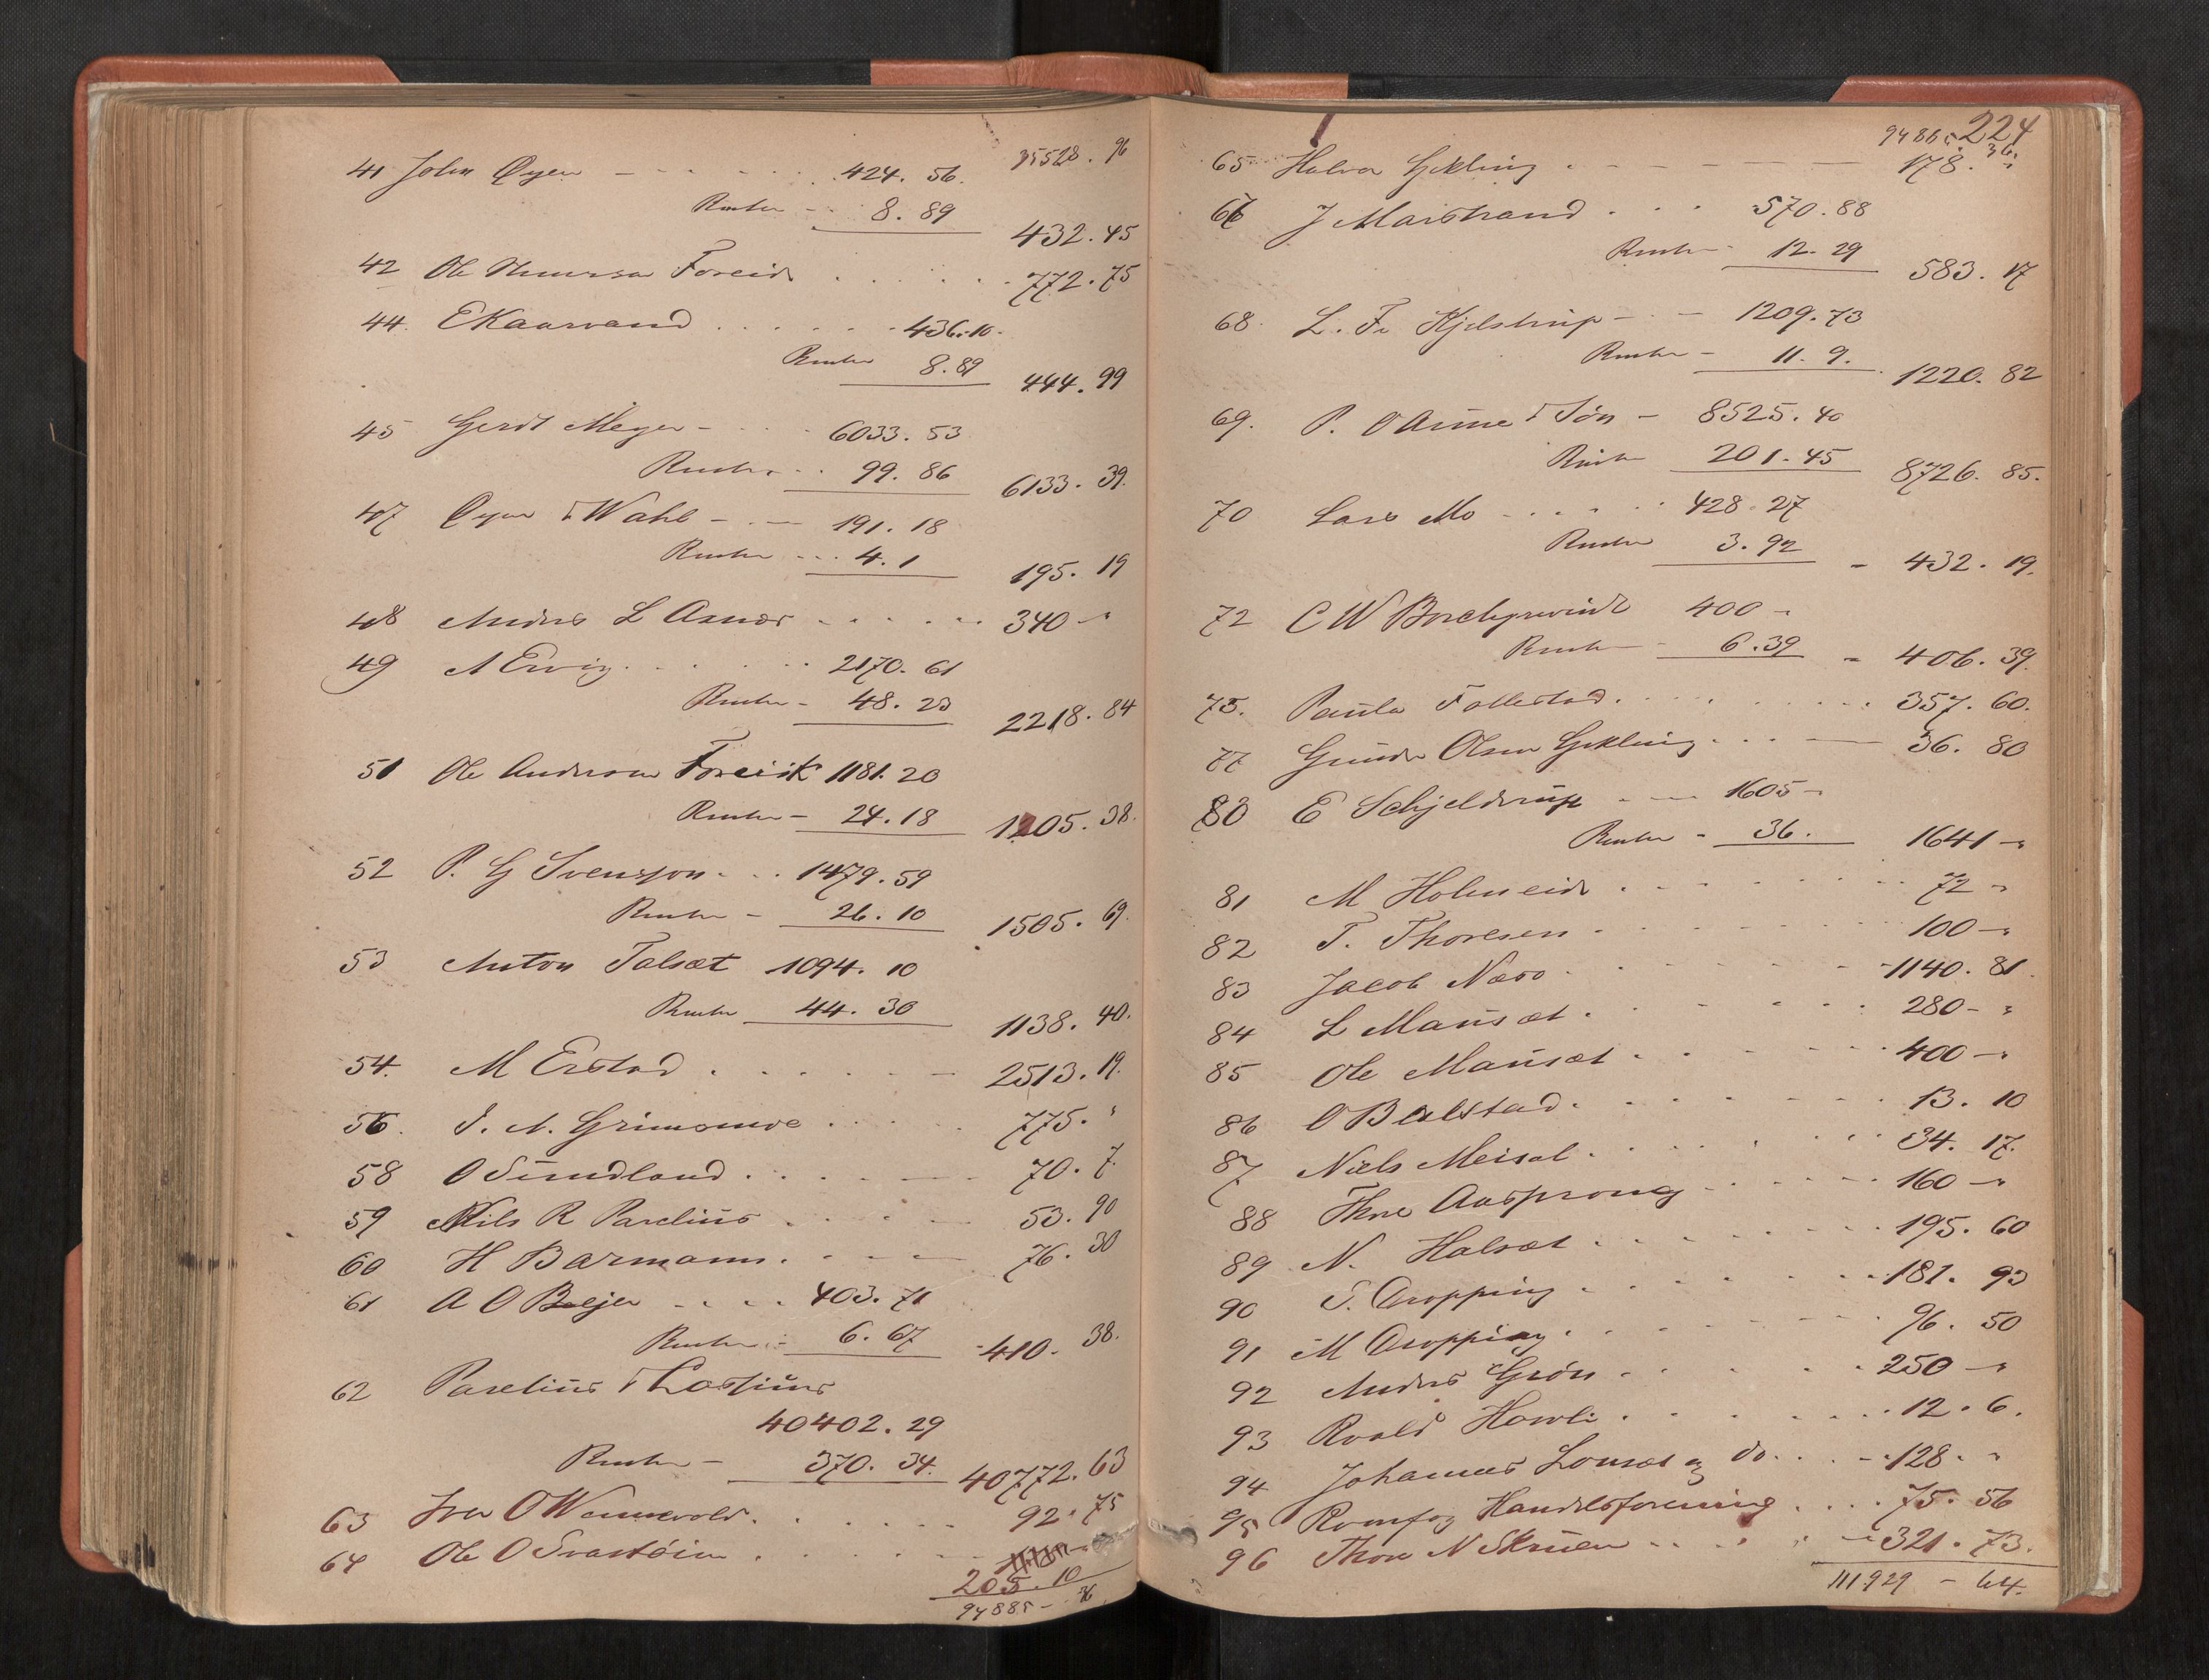 35528. 96
41 John Øyen - - - - 424. 56.
Renter - 8. 89
432. 45
42 Ole Foreid . . . . 772. 75
44. E Kaarvand . . . . 436. 10-
Renter 8. 89
444. 99
45 Gerdt Meyer - - - 6033. 53
Renter - . 99. 86
6133. 39.
47 Øyen & Wahl - - - 191. 18
Renter - - . 4. 1
195. 19
48 Anders L Asnæs - - - - 340 - "
49 A Ervig . . . . 2170. 61
Renter - 48. 23
2218. 84
51 Ole Anderson Foreid 1181. 20
Renter - 24. 18
1205. 38.
52 P. G Svensson . . . 1479. 59
Renter - 26. 10
1505. 69.
53 Anton Talsæt 1094. 10
Renter 44. 30
1138. 40.
54. M Erstad . . . . - 2513. 19.
56. J. N. Grimsmoe . . . . 775. "
58 O Sundland . . . . - 70. 7.
59 Nils R Parelius . . . - 53. 90
60 H Barmann . . . - 76. 30
61 A O Bøejer - . . . 403. 71
Renter - 6. 67
410. 38.
62 Parelius & Lossius
40402. 29
Renter - 370. 34.
40772. 63
63 Iver O Wennevold . . . . - 92. 75
64 Ole O Svartøien . . . . -
205. 10
94885 - 36
224
94885. 36.
65 Halvor Gikling . - - - - 178. "
67 J Marstrand . . . 570. 88
Renter - 12. 29
583. 17
68. L. Fr Kjelstrup - - 1209. 73
Renter - 11. 9.
1220. 82
69. P. O Aune & Søn - 8525. 40
Renter 201. 45
8726. 85.
70 Lars Mo - . . . 428. 27
Renter 3. 92
- 432. 19.
72 C W Borchgrevink 400 -
Renter - 6. 39
- 406. 39.
75. Paula Follestad . . . . . 357. 60.
77 Gunder Olsen Gikling . . . - 36. 80
80 E Schjelderup . - - 1605 -
Renter - 36.
1641 - "
81 M Holmeide . - - - - 72 - "
82 T. Thoresen . - - - - 100 - "
83 Jacob Næss . - - - - 1140. 81.
84 L Mausæt . - - - . 280 - "
85 Ole Mausæt . - - - 400 - "
86 O Bælstad . - - - - 13. 10
87 Niels Meisal . . . . . 34. 17.
88 Thore Aasprong . - - - - 160 - "
89 N. Halsæt . . . . . 195. 60
90 S. Dropping . . . . . 181. 93
91 M Dropping . . . . . 96. 50
92 Anders Grön . . . . . 250 - "
93 Roald Hovli . . . . . 12. 6.
94 Johannes Lønset og do. . . - 128. "
95 Romfog Handelsforening . . . . 75. 56
96 Thore N Skruen - - . . - 321. 73.
111929 - 64.